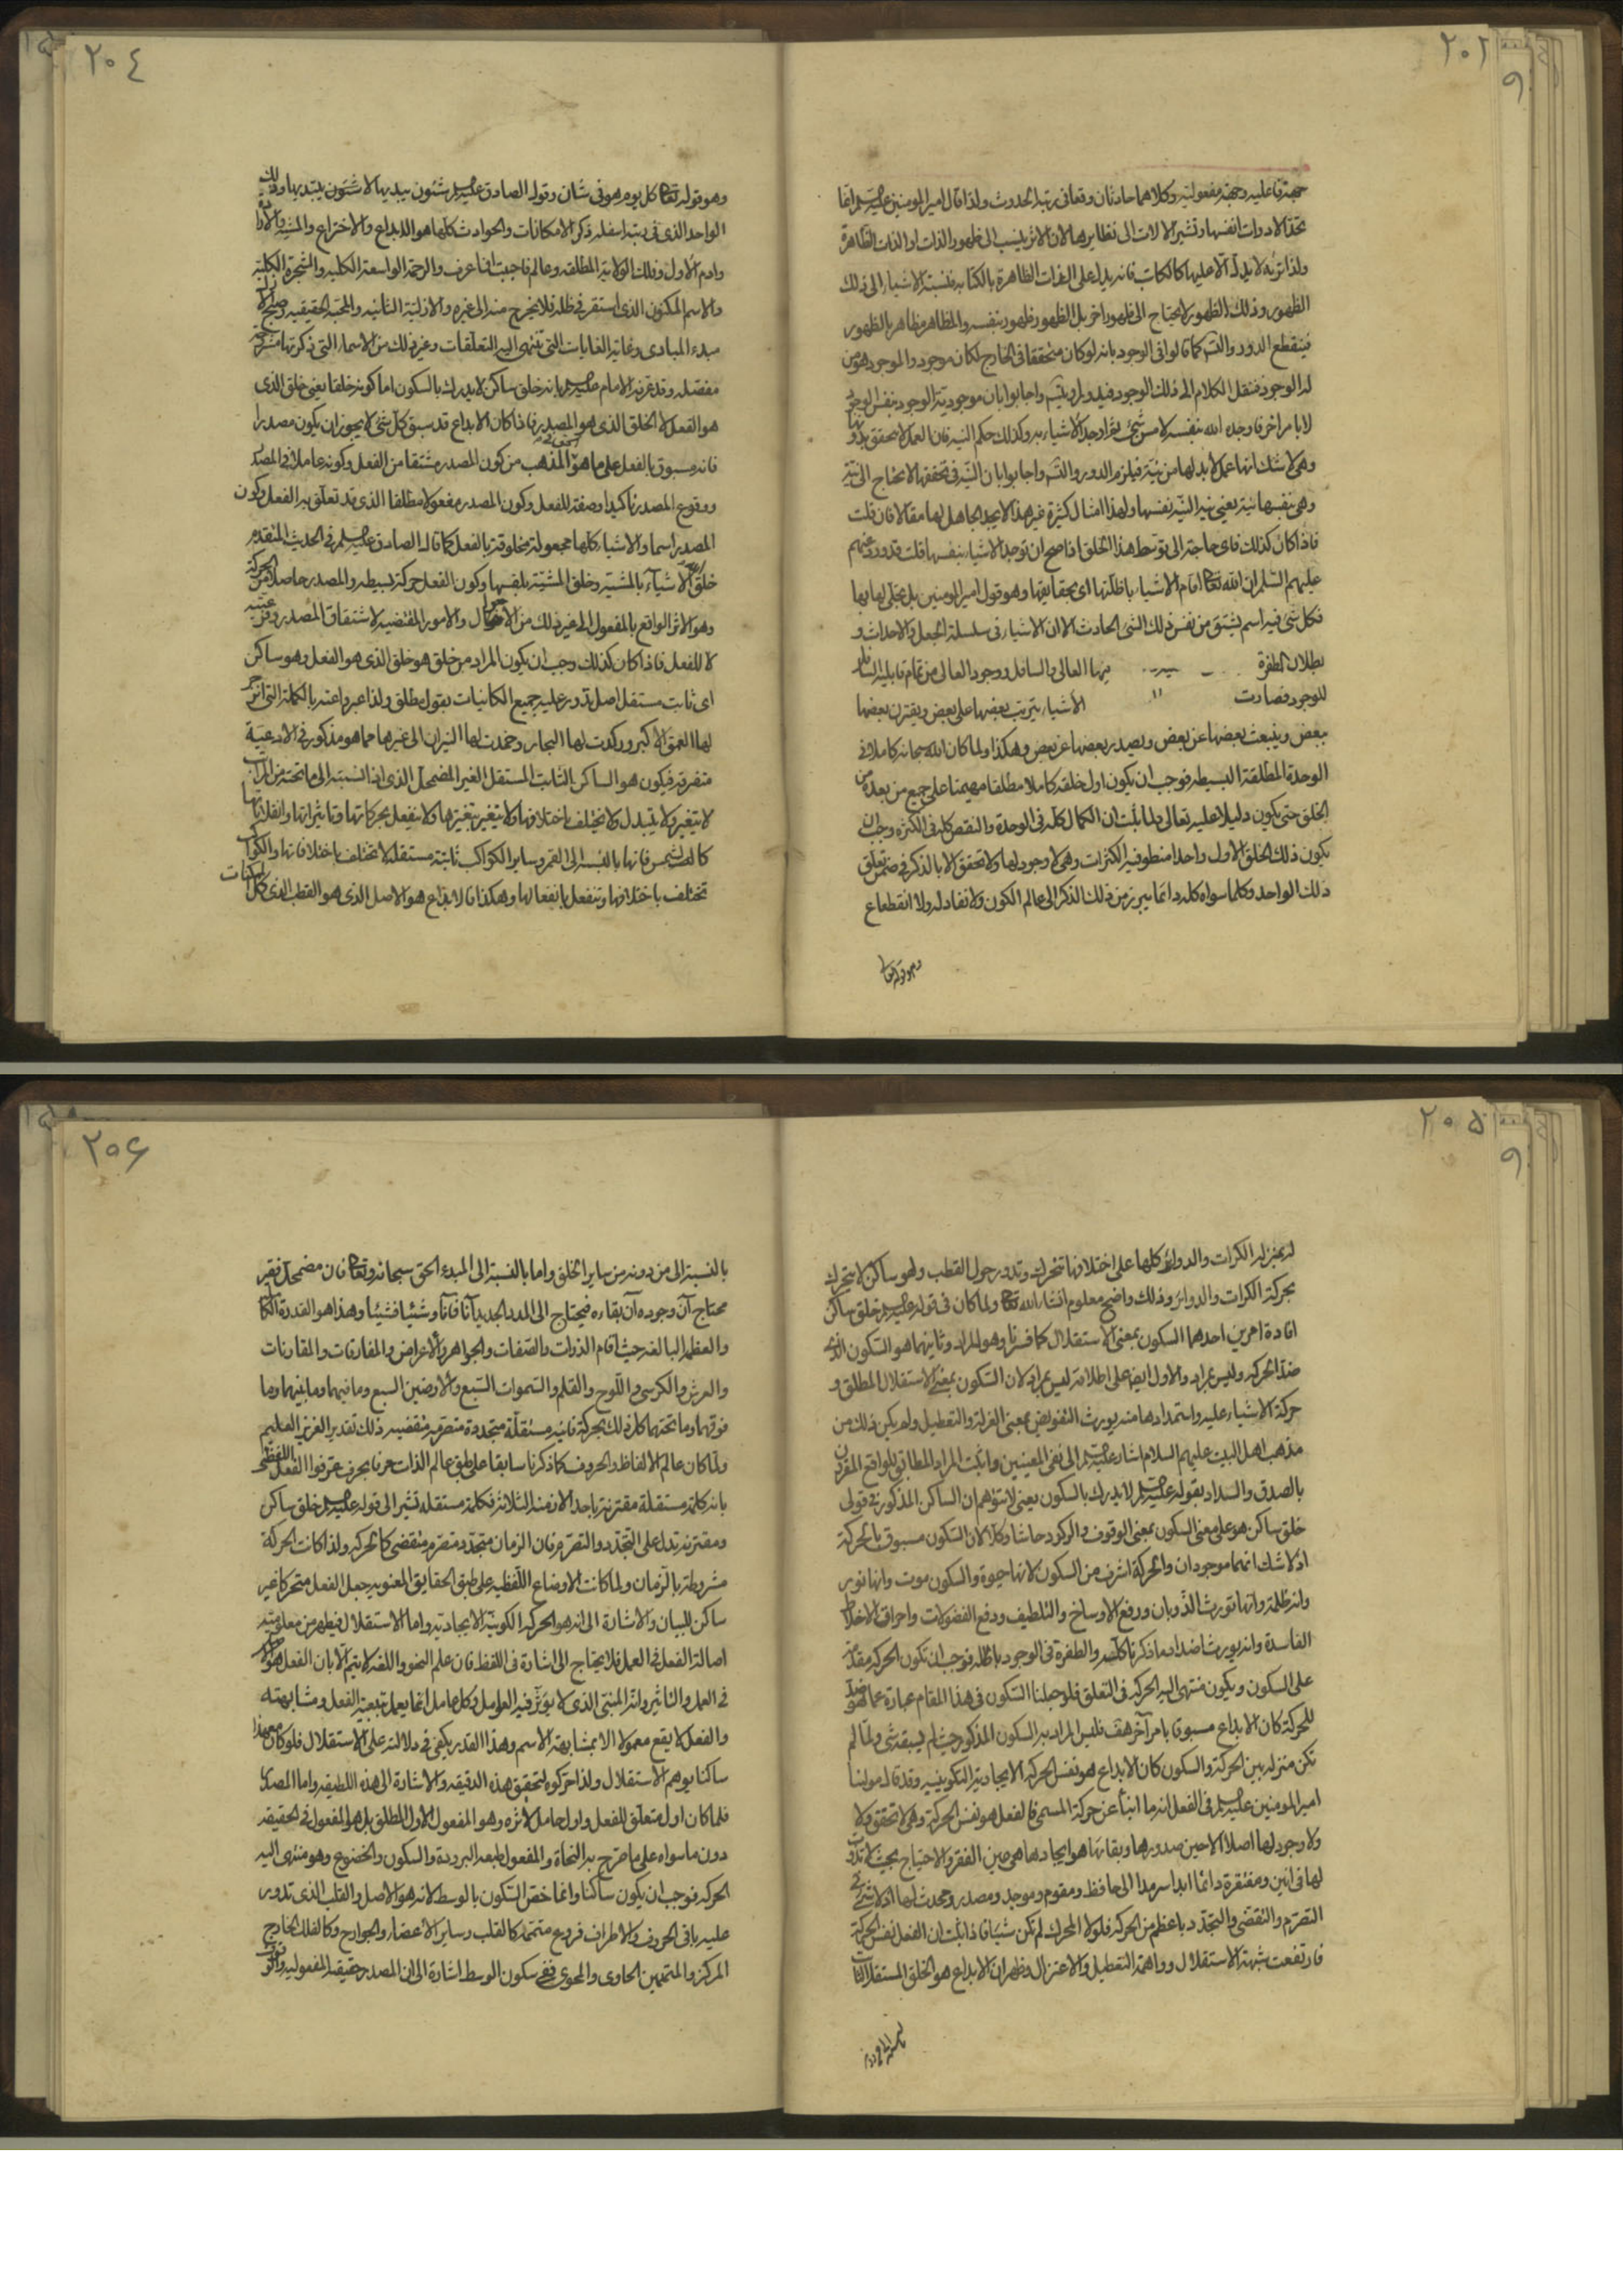 ٢٠٢
جهة فاعليه وجهة مفعوليته وكلاهما حادثان وقعا في رتبة الحدوث ولذا قال امير المومنين عليه السلم انما
تحد الادوات انفسها وتشير الالات الى نظايرها لان الاثر ينسب الى ظهور الذات او الذات الظاهرة
ولذا تريه لا يدل الا عليها كالكاتب فانه يدل على الذات الظاهرة بالكتابه فنسبة الاشياء الى ذلك
الظهور وذلك الظهور لا يحتاج الى ظهور اخر بل الظهور ظهور بنفسه والمظاهر مظاهر بالظهور
فينقطع الدور والتس كما قالوا في الوجود بانه لو كان متحققا في الخارج لكان موجودا والموجود هو من
له الوجود فننقل الكلام الى ذلك الوجود فيدور او يتس واجابوا بان موجودية الوجود بنفس الوجود
لا بامر اخر فاوجده الله بنفسه لا من شئ ثم اوجد الاشياء به وكذلك حكم النيه فان العمل لا يتحقق بدونها
وهي لا شك انها عمل لا بد لها من نية فيلزم الدور والتس واجابوا بان النيه في تحققها لا تحتاج الى نية
وهي بنفسها نية يعني نية النية نفسها ولهذا امثال كثيرة غير هذا لا يجد الجاهل لها مقالا فان قلت
فاذا كان كذلك فاي حاجة الى توسط هذا الخلق اذا صح ان توجد الاشياء بنفسها قلت قد ورد عنهم
عليهم السلم ان الله تعالى اقام الاشياء باظلتها اي بحقايقها وهو قول امير المومنين بل تجلى لها بها
فكل شئ فيه اسم يشتق من نفس ذلك الشئ الحادث الا ان الاشياء في سلسلة الجعل والاحداث و
بطلان الطفرة بها العالي والسافل ووجود العالي من تمام قابلية السافل
للوجود فصارت الأشياء يترتب بعضها على بعض ويقترن بعضها
ببعض وينبعث بعضها عن بعض ويصدر بعضها عن بعض وهكذا ولما كان الله سبحانه كاملا في
الوحدة المطلقة البسيطه فوجب ان يكون اول خلقه كاملا مطلقا مهيمنا على جميع من بعده من
الخلق حتى يكون دليلا عليه تعالى ولما ثبت ان الكمال كله في الوحدة والنقص كله في الكثرة وجب ان
يكون ذلك الخلق الاول واحدا منطو فيه الكثرات وهي لا وجود لها ولا تحقق الا بالذكر في ضمن تعلق
ذلك الواحد وكلما سواه كله دائما يبرز من ذلك الذكر الى عالم الكون ولا نفاد له ولا انقطاع
وهو قوله تعالى
٢٠٤
وهو قوله تعالى كل يوم هو في شان وقوله الصادق عليه السلم شئون يبديها لا شئون يبتديها وذلك
الواحد الذي في رتبة اسفله ذكر الامكانات والحوادث كلها هو الابداع والاختراع والمشية والارادة
وادم الاول وفلك الولاية المطلقه وعالم فاحببت ان اعرف والرحمة الواسعة الكليه والشجرة الكلية
والاسم المكنون الذي استقر في ظله فلا يخرج منه الى غيره والازلية الثانيه والمحبة الحقيقيه وصبح الازل
مبدء المبادي وغاية الغايات التي تنتهي اليه التعلقات وغير ذلك من الاسماء التي ذكرتها متفرقة
مفصله وقد عرفه الامام عليه السلم بانه خلق ساكن لا يدرك بالسكون اما كونه خلقا يعني خلق الذي
هو الفعل لا الخلق الذي هو المصدر فاذا كان الابداع قد سبق كل شئ لا يجوز ان يكون مصدرا
فانه مسبوق بالفعل على ما هو المذهب من كون المصدر مشتقا من الفعل وكونه عاملا في المصدر
ووقوع المصدر تاكيدا وصفة للفعل وكون المصدر مفعولا مطلقا الذي قد تعلق به الفعل وكون
المصدر اسما والاشياء كلها مجعولة مخلوقة بالفعل كما قال الصادق عليه السلم في الحديث المتقدم
خلق الأشياء بالمشية وخلق المشية بنفسها وكون الفعل حركة بسيطه والمصدر حاصلا من الحركة
وهو الاثر الواقع بالمفعول الى غير ذلك من الأحوال والامور المقتضيه لاشتقاق المصدر وفرعيته
لا للفعل فاذا كان كذلك وجب ان يكون المراد من خلق هو خلق الذي هو الفعل وهو ساكن
اي ثابت مستقل اصل تدور عليه جميع الكائنات بقول مطلق ولذا عبروا عنه بالكلمة التي انزجر
لها العمق الاكبر وركدت لها البحار وخمدت لها النيران الى غيرها مما هو مذكور في الادعية
متفرقه فيكون هو الساكن الثابت المستقل الغير المضمحل الذي اذا النسبة الى ما تحته من المراتب
لا يتغير ولا يتبدل ولا يختلف باختلافها ولا يتغير بتغيرها ولا ينفعل بحركاتها وتاثيراتها وانفعالاتها
كالشمس فانها بالنسبه الى القمر وساير الكواكب ثابتة مستقلة لا تختلف باختلافاتها والكواكب
تختلف باختلافها وتنفعل بانفعالها وهكذا فالابداع هو الاصل الذي هو القطب الذي كل الكائنات
٢٠٥
له بمنزلة الكرات والدوائر كلها على اختلافها تتحرك وتدور حول القطب وهو ساكن لا يتحرك
بحركة الكرات والدوائر وذلك واضح معلوم انشاء الله تعالى ولما كان في قوله عليه السلم خلق ساكن
افادة امرين احدهما السكون بمعنى الاستقلال كما فسرنا وهو المراد وثانيهما هو السكون الذي
ضد الحركه وليس بمراد والاول ايضا على اطلاقه ليس بمراد لان السكون بمعنى الاستقلال المطلق و
حركة الاشياء عليه واستمدادها منه يورث التفويض بمعنى العزلة والتعطيل ولم يكن ذلك من
مذهب اهل البيت عليهم السلام اشار عليه السلم الى نفي المعنيين واثبت المراد المطابق للواقع المقرون
بالصدق والسداد بقوله عليه السلم لا يدرك بالسكون يعني لا تتوهم ان الساكن المذكور في قولي
خلق ساكن هو على معنى السكون بمعنى الوقوف والركود حاشا وكلا لان السكون مسبوق بالحركة
اذ لا شك انهما موجودان والحركة اشرف من السكون لانها حيوة والسكون موت وانها نور
وانه ظلمة وانها تورث الذوبان ورفع الاوساخ والتلطيف ودفع الفضولات واحراق الاخلاط
الفاسدة وانه يورث اضداد ما ذكرنا كله والطفرة في الوجود باطله فوجب ان تكون الحركه مقدمة
على السكون ويكون منتهى اليه الحركه في التعلق فلو جعلنا السكون في هذا المقام عبارة عما هو ضد
للحركة كان الابداع مسبوقا بامر آخر هف فليس المراد به السكون المذكور حيث لم يسبقه شئ ولما لم
تكن منزلة بين الحركة والسكون كان الابداع هو نفس الحركه الايجادية التكوينيه وقد قال مولنا
امير المومنين عليه السلم في الفعل انه ما انبأ عن حركة المسمى فالفعل هو نفس الحركة وهي لا تحقق ولا
ولا وجود لها اصلا الا حين صدورها وبقائها هو ايجادها هي عين الفقر والاحتياج بحيث لا تذوت
لها في انين ومفتقرة دائما ابدا سرمدا الى حافظ ومقوم وموجد ومصدر ومحدث لها اذ لا شئ في
التصرم والتقضي والتجدد باعظم من الحركه فلولا المحرك لم تكن شيئا فاذا ثبت ان الفعل نفس الحركة
فارتفعت شبهة الاستقلال وواهمة التعطيل والاعتزال وظهر ان الابداع هو الخلق المستقل الثابت
٢٠٦
بالنسبة الى من دونه من ساير الخلق واما بالنسبة الى المبدء الحق سبحانه وتعالى فان مضمحل فقير
محتاج آن وجوده آن بقاءه فيحتاج الى المدد الجديد آنا فآنا وشيئا فشيئا وهذا هو القدرة الكاملة
والعظمة البالغه حيث اقام الذوات والصفات والجواهر والأعراض والمفارقات والمقارنات
والعرش والكرسي واللوح والقلم والسموات السبع والارضين السبع وما فيهما وما بينهما وما
فوقهما وما تحتهما كل ذلك بحركة فانيه مستقلة متجددة متصرمه متقضيه ذلك تقدير العزيز العليم
ولما كان عالم الالفاظ والحروف كما ذكرنا سابقا على طبق عالم الذات حرفا بحرف عرفوا الفعل اللفظي
بانه كلمة مستقلة مقترنة باحد الازمنة الثلاثة فكلمة مستقله تشير الى قوله عليه السلم خلق ساكن
ومقترنة تدل على التجدد والتصرم فان الزمان متجدد متصرم متقضي كالحركه ولذا كانت الحركة
مشروطة بالزمان ولما كانت الاوضاع اللفظيه على طبق الحقايق المعنويه جعل الفعل متحركا غير
ساكن للبيان والاشارة الى انه هو الحركه الكونية الايجاديه واما الاستقلال فيظهر من معلوميته
اصالة الفعل في العمل فلا يحتاج الى اشارة في اللفظ فان علم النحو واللغه لا يتم الا بان الفعل هو الاصل
في العمل والتاثير وانه المبني الذي لا يؤثر فيه العوامل وكل عامل انما يعمل بتبعية الفعل ومشابهته
والفعل لا يقع معمولا الا بمشابهة الاسم وهذا القدر يكفي في دلالته على الاستقلال فلو كان مع هذا
ساكنا يوهم الاستقلال ولذا حركوه لتحقق هذه الدقيقه والاشارة الى هذه اللطيفه واما المصدر
فلما كان اول متعلق للفعل واول حامل لاثره وهو المفعول الاول المطلق بل هو المفعول في الحقيقه
دون ما سواه على ما صرح به النحاة والمفعول طبعه البرودة والسكون والخضوع وهو منتهى اليه
الحركه فوجب ان يكون ساكنا وانما خص السكون بالوسط لانه هو الاصل والقلب الذي تدور
عليه باقي الحروف والاطراف فروع متممة كالقلب وساير الأعضاء والجوارح وكالفلك الخارج
المركز والمتممين الحاوي والمحوي ففي سكون الوسط اشارة الى ان المصدر حقيقة المفعوليه